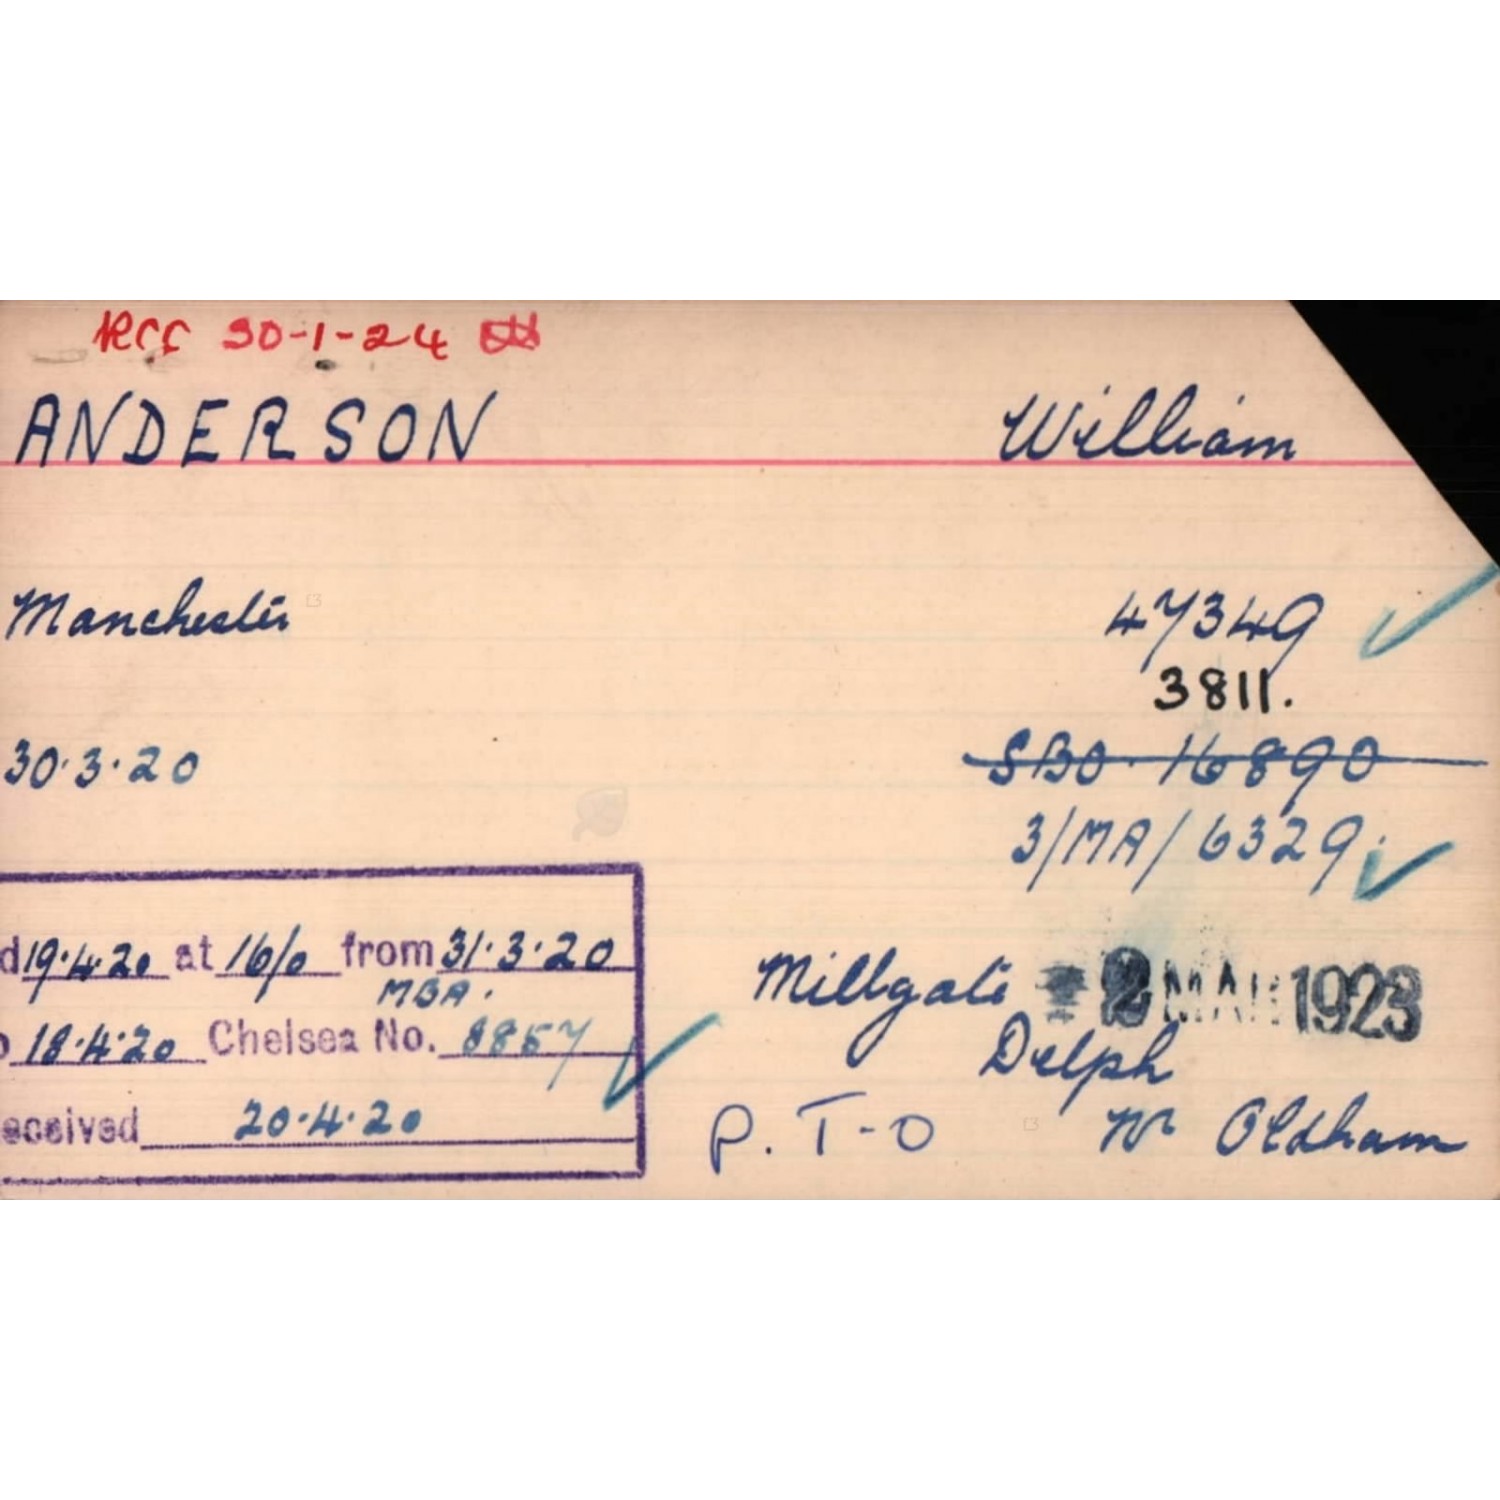 Rec 30-1-24
ANDERSON William
Manchester 47349
3811.
30.3.20 SBO. 16890
3/MA/6329.
d 19.4.20 at 16/0 from 31.3.20
MBA.
o 18.4.20 Chelsea No. 8857
eceived 20.4.20
Millgate 2 MAR 1923
Delph
P.T-O Nr Oldham